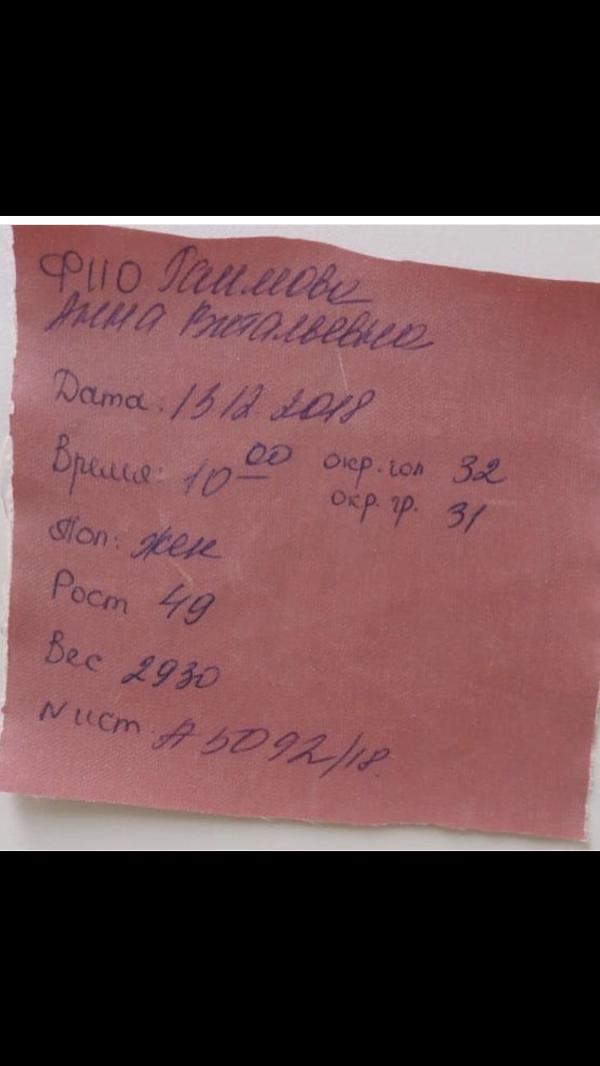 ФИО Гаимова
Анна Витальевна
Дата: 13 12 2018
Время: 10 00 окр. гол 32
окр. гр. 31
Пол: жен
Рост 49
Вес 2930
N ист. А 5092/18.